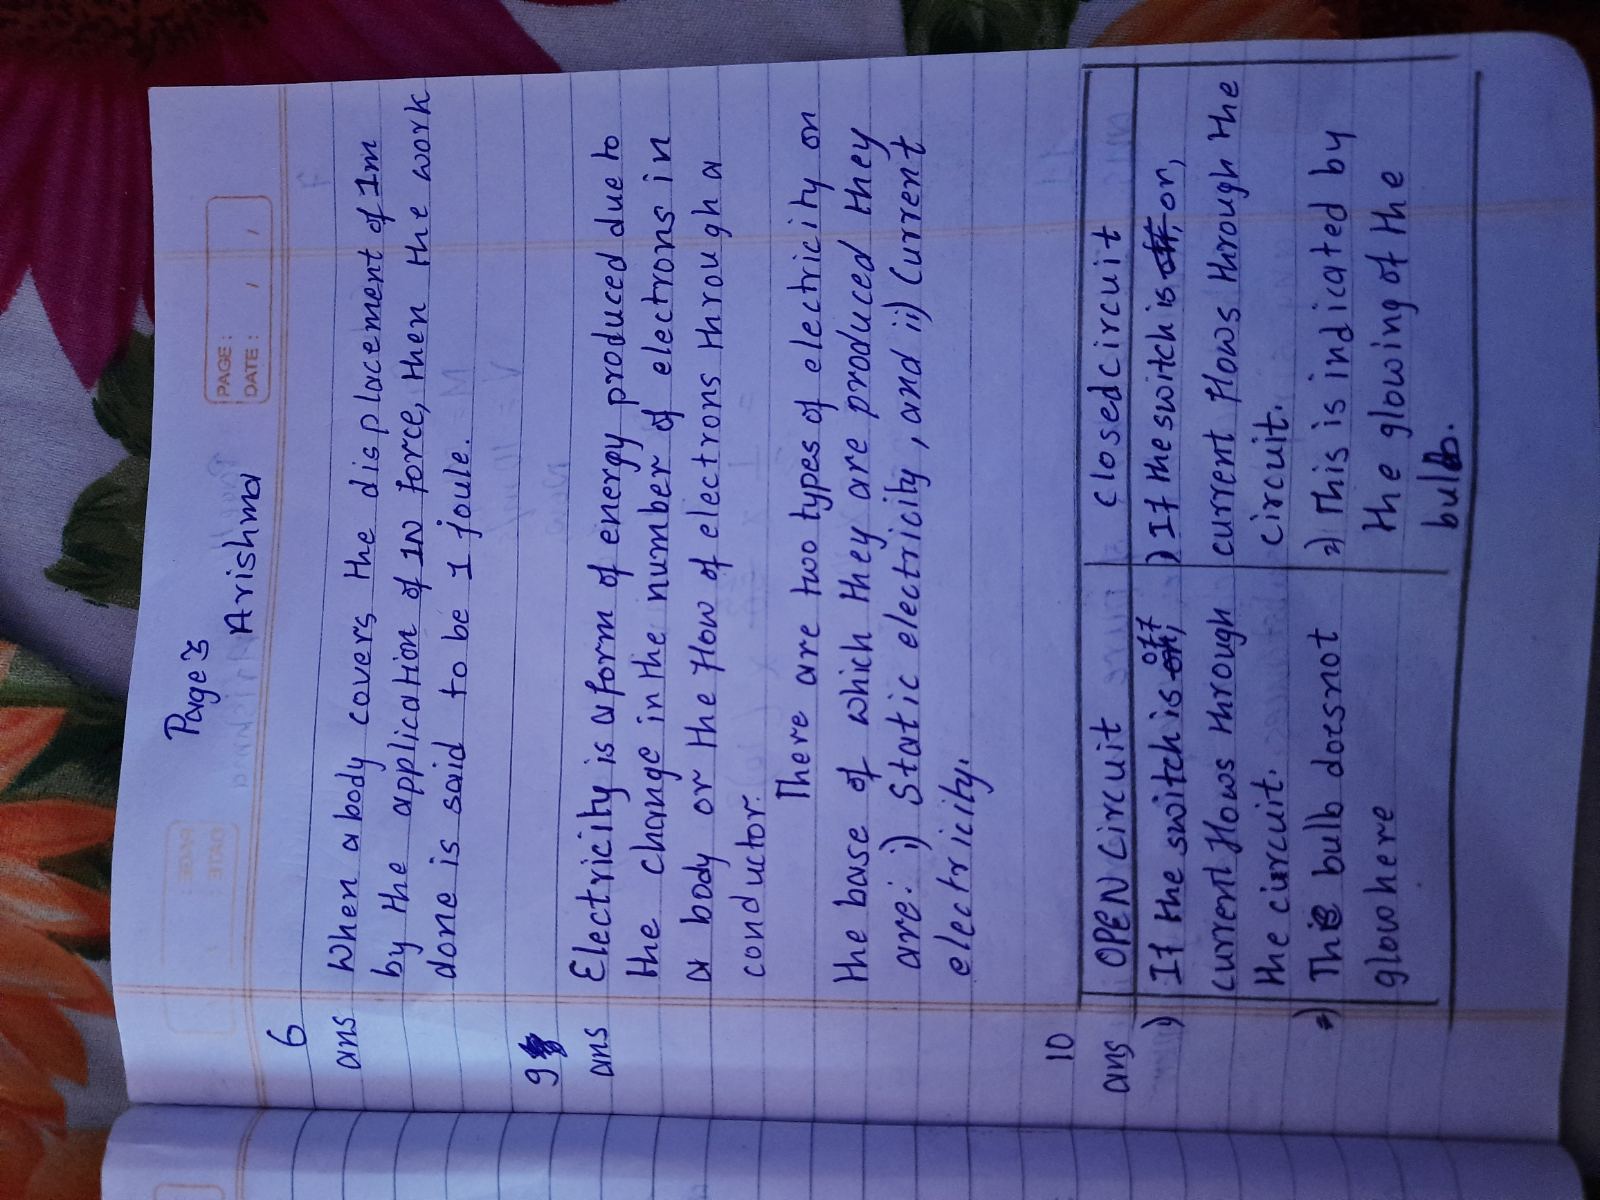 Page 3
Arishma
PAGE:
DATE: / /
6
ans When a body covers the displacement of 1m
by the application of 1N force, then the work
done is said to be 1 joule.
9
ans Electricity is a form of energy produced due to
the change in the number of electrons in
a body or the flow of electrons through a
conductor.
There are two types of electricity on
the base of which they are produced they
are: i) Static electricity, and ii) Current
electricity.
10
ans OPEN Circuit closed circuit
1) If the switch is off, 1) If the switch is on,
current flows through current flows through the
the circuit. circuit.
2) The bulb doesnot 2) This is indicated by
glow here the glowing of the
bulb.